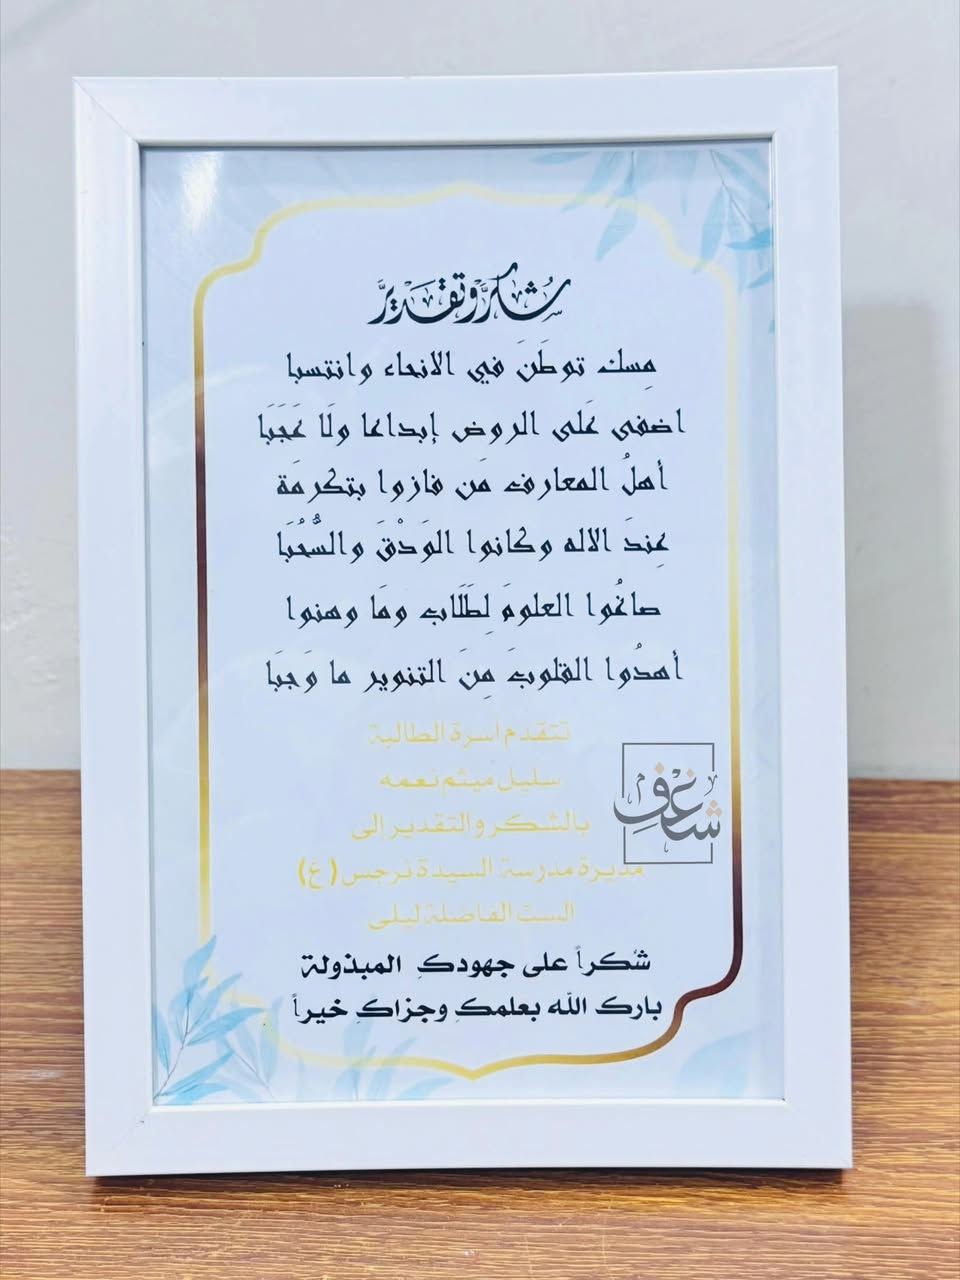 شُكرٌ وتقديرٌ
مِسك توطَنَ في الانحاء وانتسبا
اضفى عَلى الروض إبداعا ولَا عَجَبَا
أهلُ المعارف مَن فازوا بتكرمَة
عِندَ الاله وكانوا الوَدْقَ والسُّحُبَا
صاغُوا العلومَ لِطَلَاب ومَا وهنوا
أهدُوا القلوبَ مِنَ التنوير ما وَجبَا
تتقدم أسرة الطالبة
سليل ميثم نعمه
بالشكر والتقدير الى
مديرة مدرسة السيدة نرجس (ع)
الست الفاضلة ليلى
شكراً على جهودكِ المبذولة
بارك الله بعلمكِ وجزاكِ خيراً
شاغف